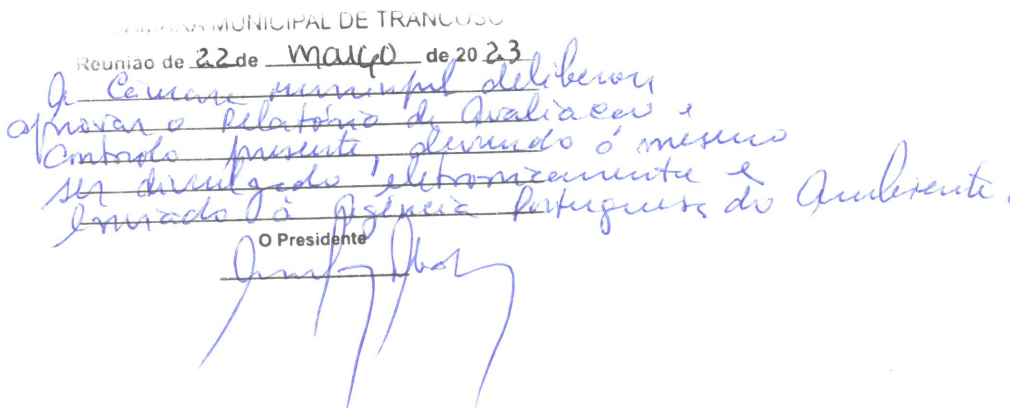 CÂMARA MUNICIPAL DE TRANCOSO
Reunião de 22 de Março de 2023
A Câmara municipal deliberou
aprovar o Relatório de Avaliação e
Controlo presente, devendo o mesmo
ser divulgado eletronicamente e
enviado à Agência Portuguesa do Ambiente.
O Presidente